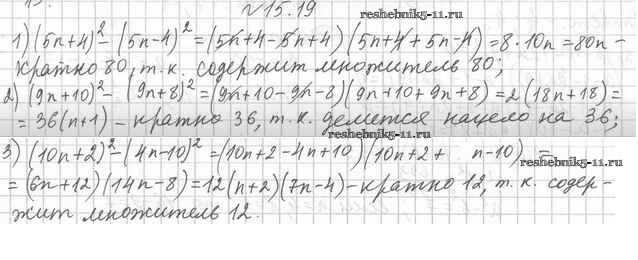 №15.19
reshebnik5-11.ru
1) (5n+4)² - (5n-4)² = (5n+4-5n+4)(5n+4+5n-4) = 8·10n = 80n -
кратно 80, т.к. содержит множитель 80;
2) (9n+10)² - (9n+8)² = (9n+10-9n-8)(9n+10+9n+8) = 2(18n+18) =
= 36(n+1) - кратно 36, т.к. делется нацело на 36;
reshebnik5-11.ru
3) (10n+2)² - (4n-10)² = (10n+2-4n+10)(10n+2+ n-10) =
= (6n+12)(14n-8) = 12(n+2)(7n-4) - кратно 12, т.к. содер-
жит множитель 12.
reshebnik5-11.ru